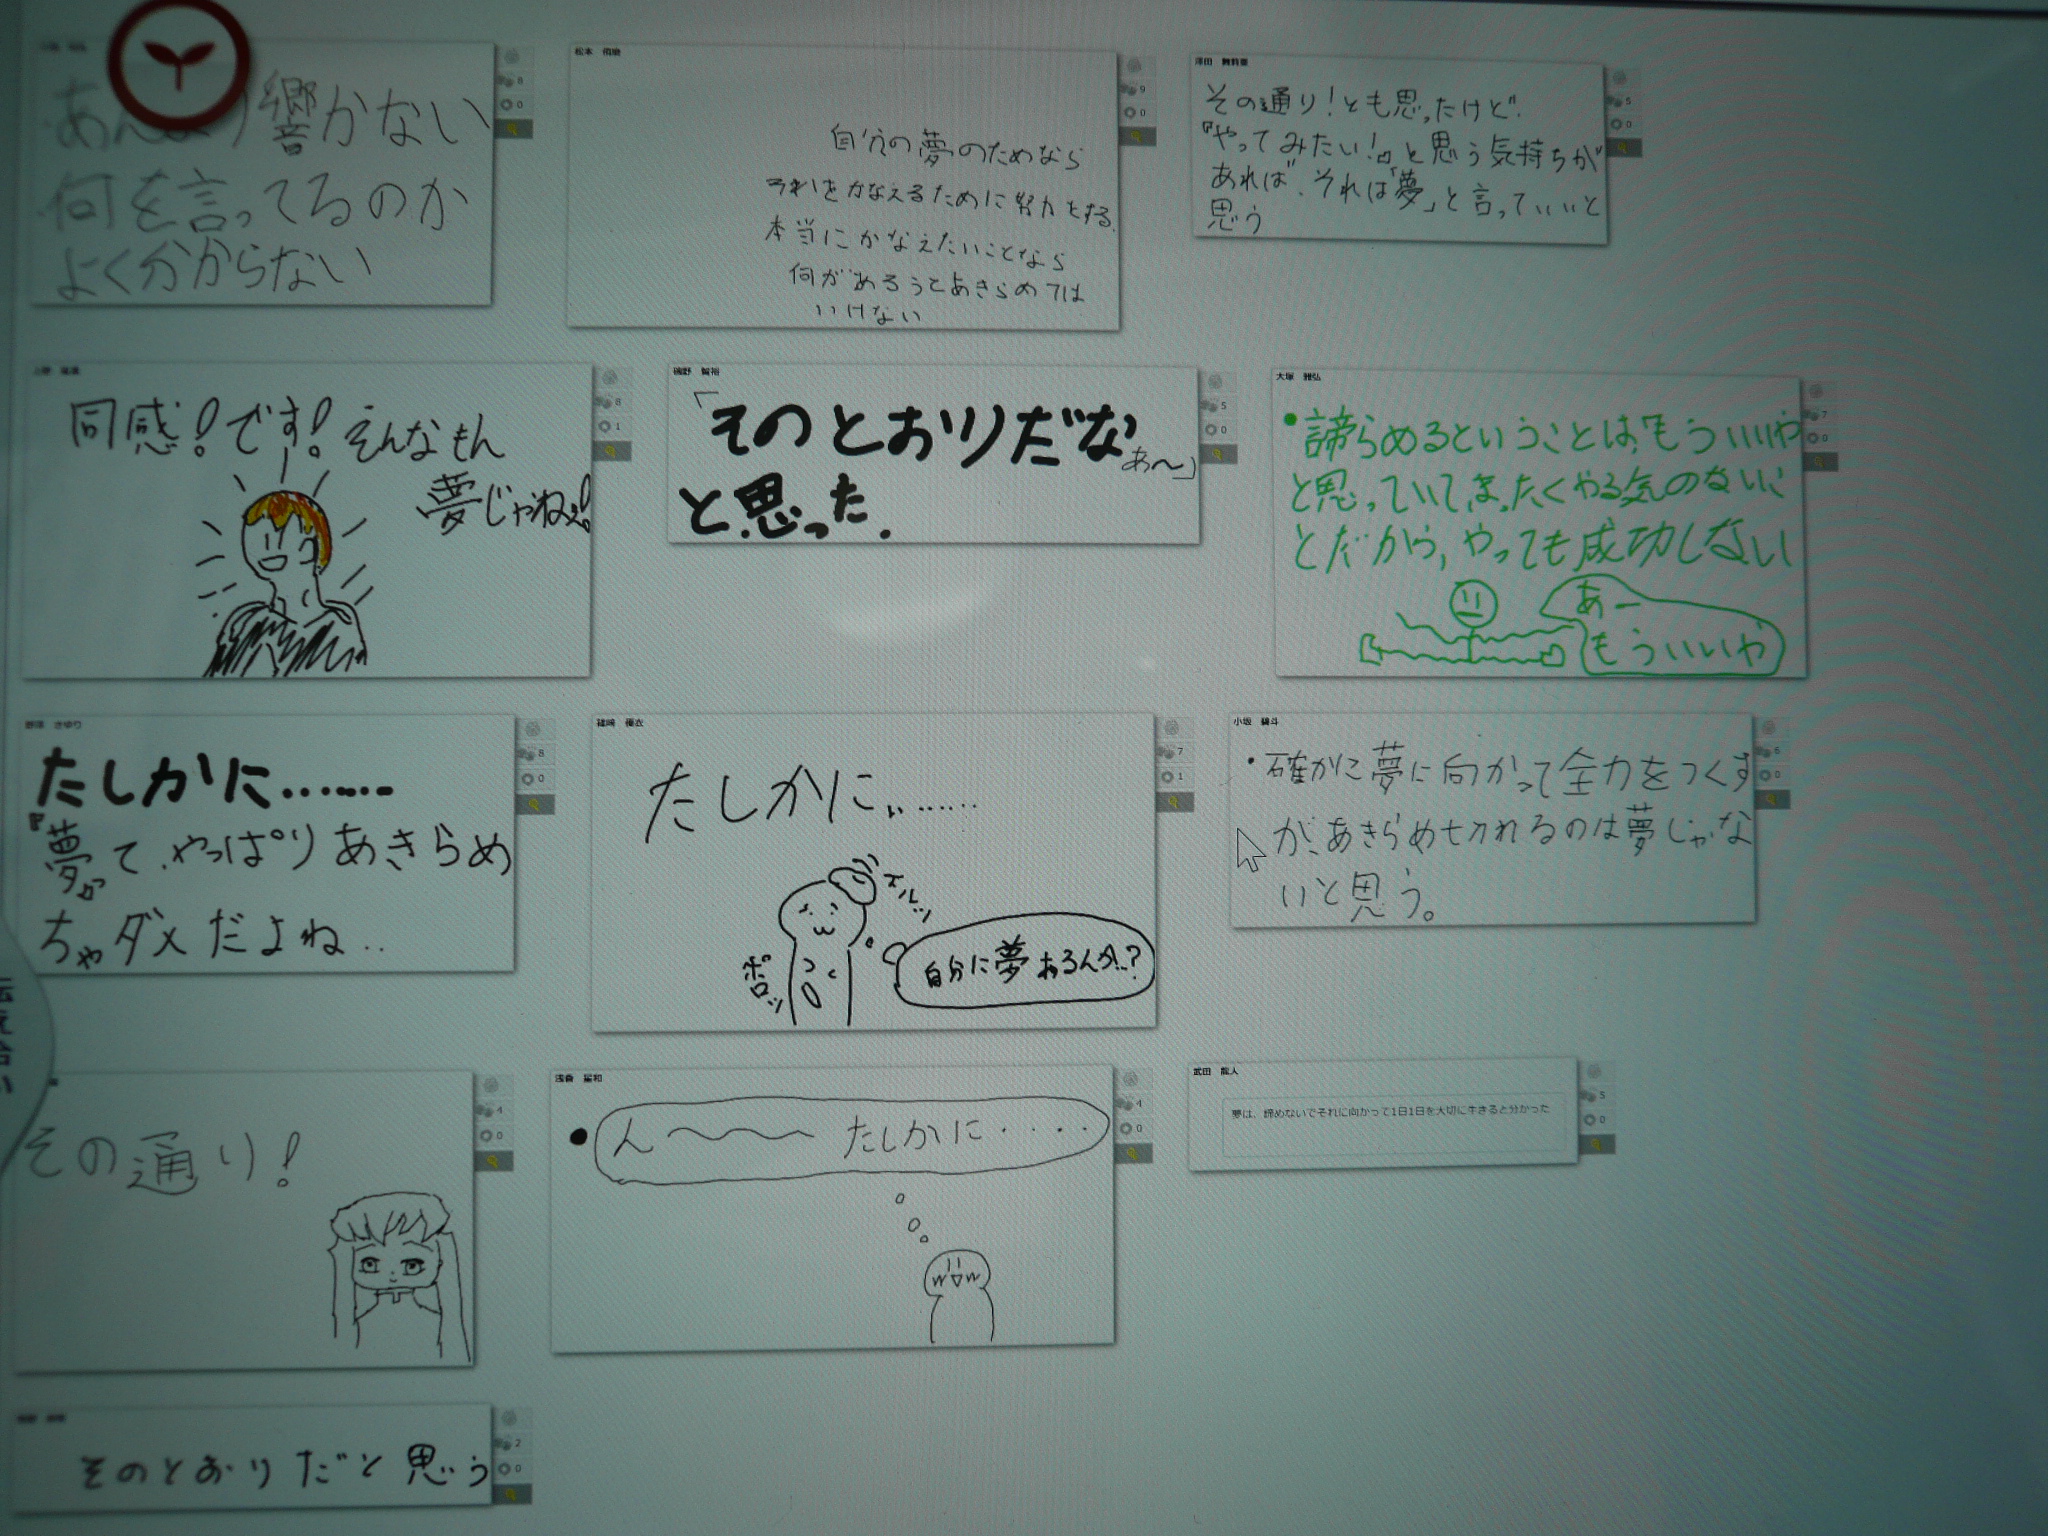 響かない
何を言ってるのか
よく分からない
8
0
松本
自分の夢のためなら
それをかなえるために努力をする.
本当にかなえたいことなら
何があろうとあきらめては
いけない
9
0
その通り!とも思ったけど.
『やってみたい!』と思う気持ちが
あれば、それは「夢」と言っていいと
思う
5
0
同感!です!そんなもん
夢じゃねぇ!
8
1
磯野 智裕
「そのとおりだな
あ〜」
と思った.
5
0
大塚 雅弘
・諦らめるということは、『もういいや
と思っていて、まったくやる気のないこ
とだから,やっても成功しない
あー
もういいや
7
0
さゆり
たしかに.......
『夢』って、やっぱりあきらめ
ちゃダメだよね..
8
0
篠崎 優衣
たしかに........
ポロッ
自分に夢あるんか..?
7
1
小坂
・確かに夢に向かって全力をつくす
が、あきらめ切れるのは夢じゃな
いと思う。
6
0
その通り!
4
0
●ん〜〜〜 たしかに・・・・
4
0
武田 龍人
夢は、諦めないでそれに向かって1日1日を大切に生きると分かった
5
0
そのとおりだと思う
2
0